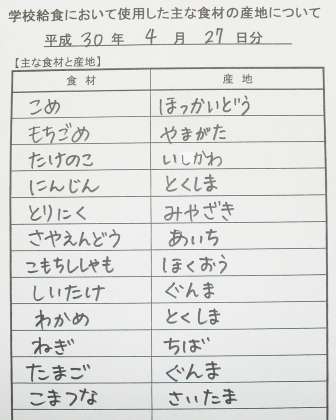 学校給食において使用した主な食材の産地について
平成30年 4月 27日分
【主な食材と産地】
食材 産地
こめ ほっかいどう
もちごめ やまがた
たけのこ いしかわ
にんじん とくしま
とりにく みやざき
さやえんどう あいち
こもちししゃも ほくおう
しいたけ ぐんま
わかめ とくしま
ねぎ ちば
たまご ぐんま
こまつな さいたま